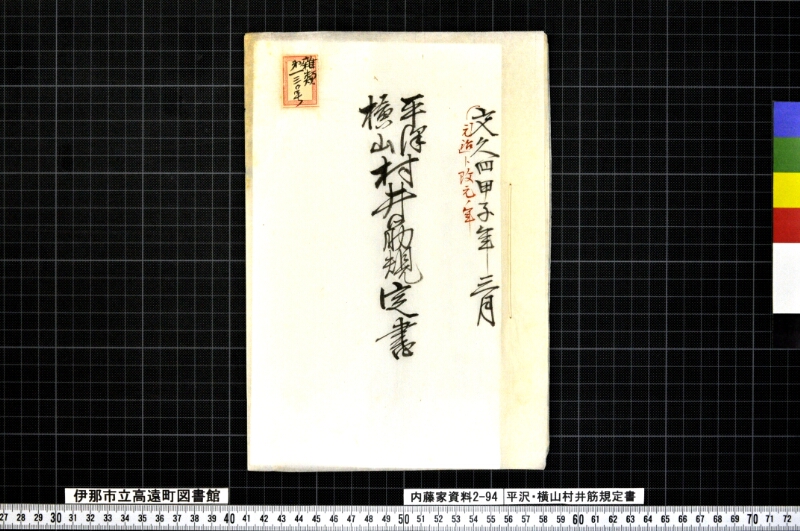 文久四甲子年三月
元治ト改元ノ年
平澤
横山村井筋規定書
雑類
第一三〇号
伊那市立高遠町図書館
内藤家資料2-94
平沢・横山村井筋規定書
27 28 29 30 31 32 33 34 35 36 37 38 39 40 41 42 43 44 45 46 47 48 49 50 51 52 53 54 55 56 57 58 59 60 61 62 63 64 65 66 67 68 69 70 71 72